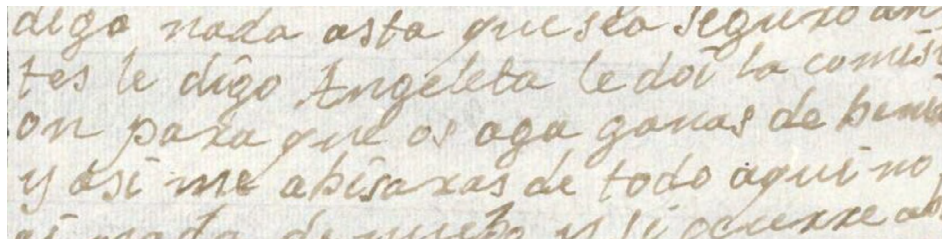 digo nada asta que sea seguro an
tes le digo Angeleta le doi la comisi
on para que os aga ganas de benir
y asi me abisaras de todo aqui no
ai nada de nuebo y si ocurre al